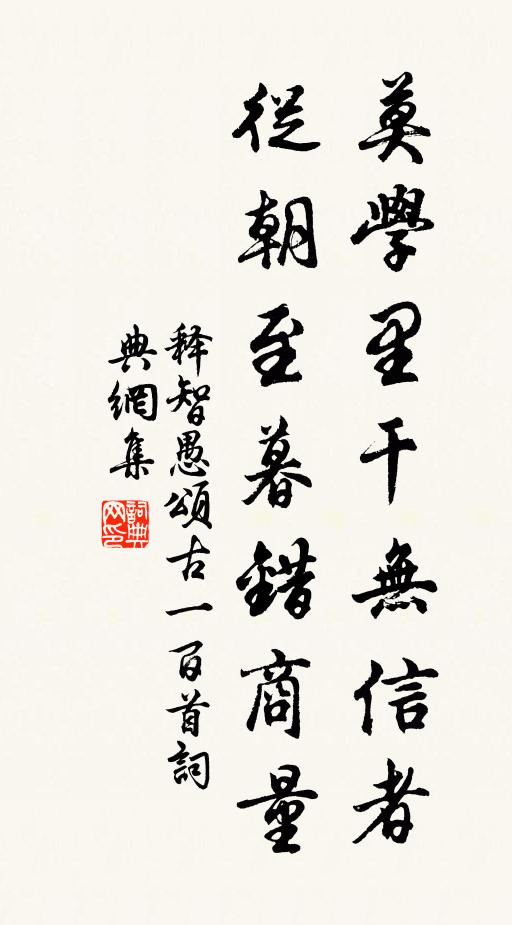 莫學里干無信者
從朝至暮錯商量
释智愚頌古一百首詞
典網集
詞典
网印